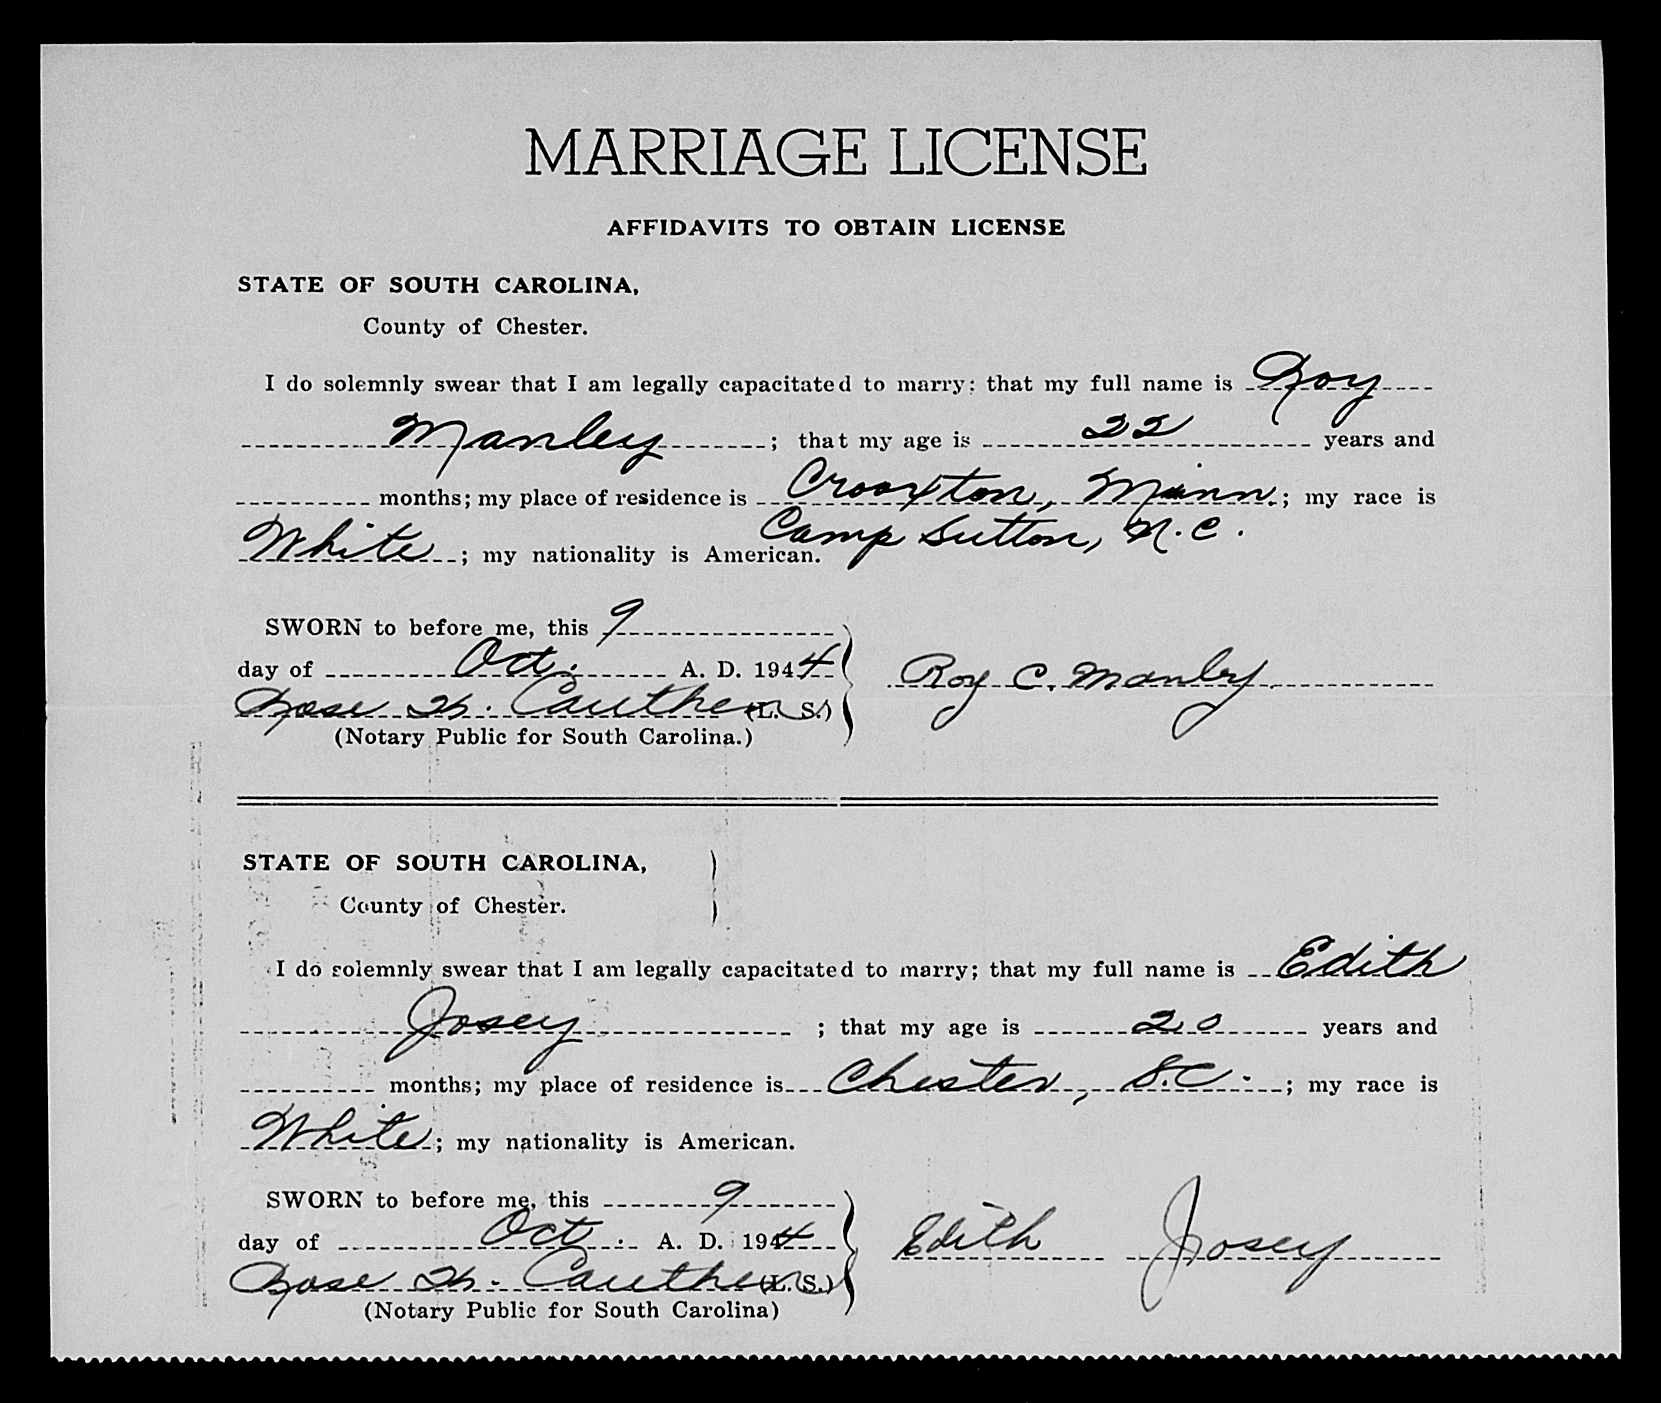 MARRIAGE LICENSE
AFFIDAVITS TO OBTAIN LICENSE
STATE OF SOUTH CAROLINA,
County of Chester.
I do solemnly swear that I am legally capacitated to marry; that my full name is Roy
Manley; that my age is 22 years and
months; my place of residence is Crooxton, Minn.; my race is
Camp Sutton, N.C.
White; my nationality is American.
SWORN to before me, this 9
day of Oct. A. D. 1944
Roy C. Manley
Rose H. Cauthen (L. S.)
(Notary Public for South Carolina.)
STATE OF SOUTH CAROLINA,
County of Chester.
I do solemnly swear that I am legally capacitated to marry; that my full name is Edith
Josey; that my age is 20 years and
months; my place of residence is Chester, S.C.; my race is
White; my nationality is American.
SWORN to before me, this 9
day of Oct. A. D. 1944
Edith Josey
Rose H. Cauthen (L. S.)
(Notary Public for South Carolina)